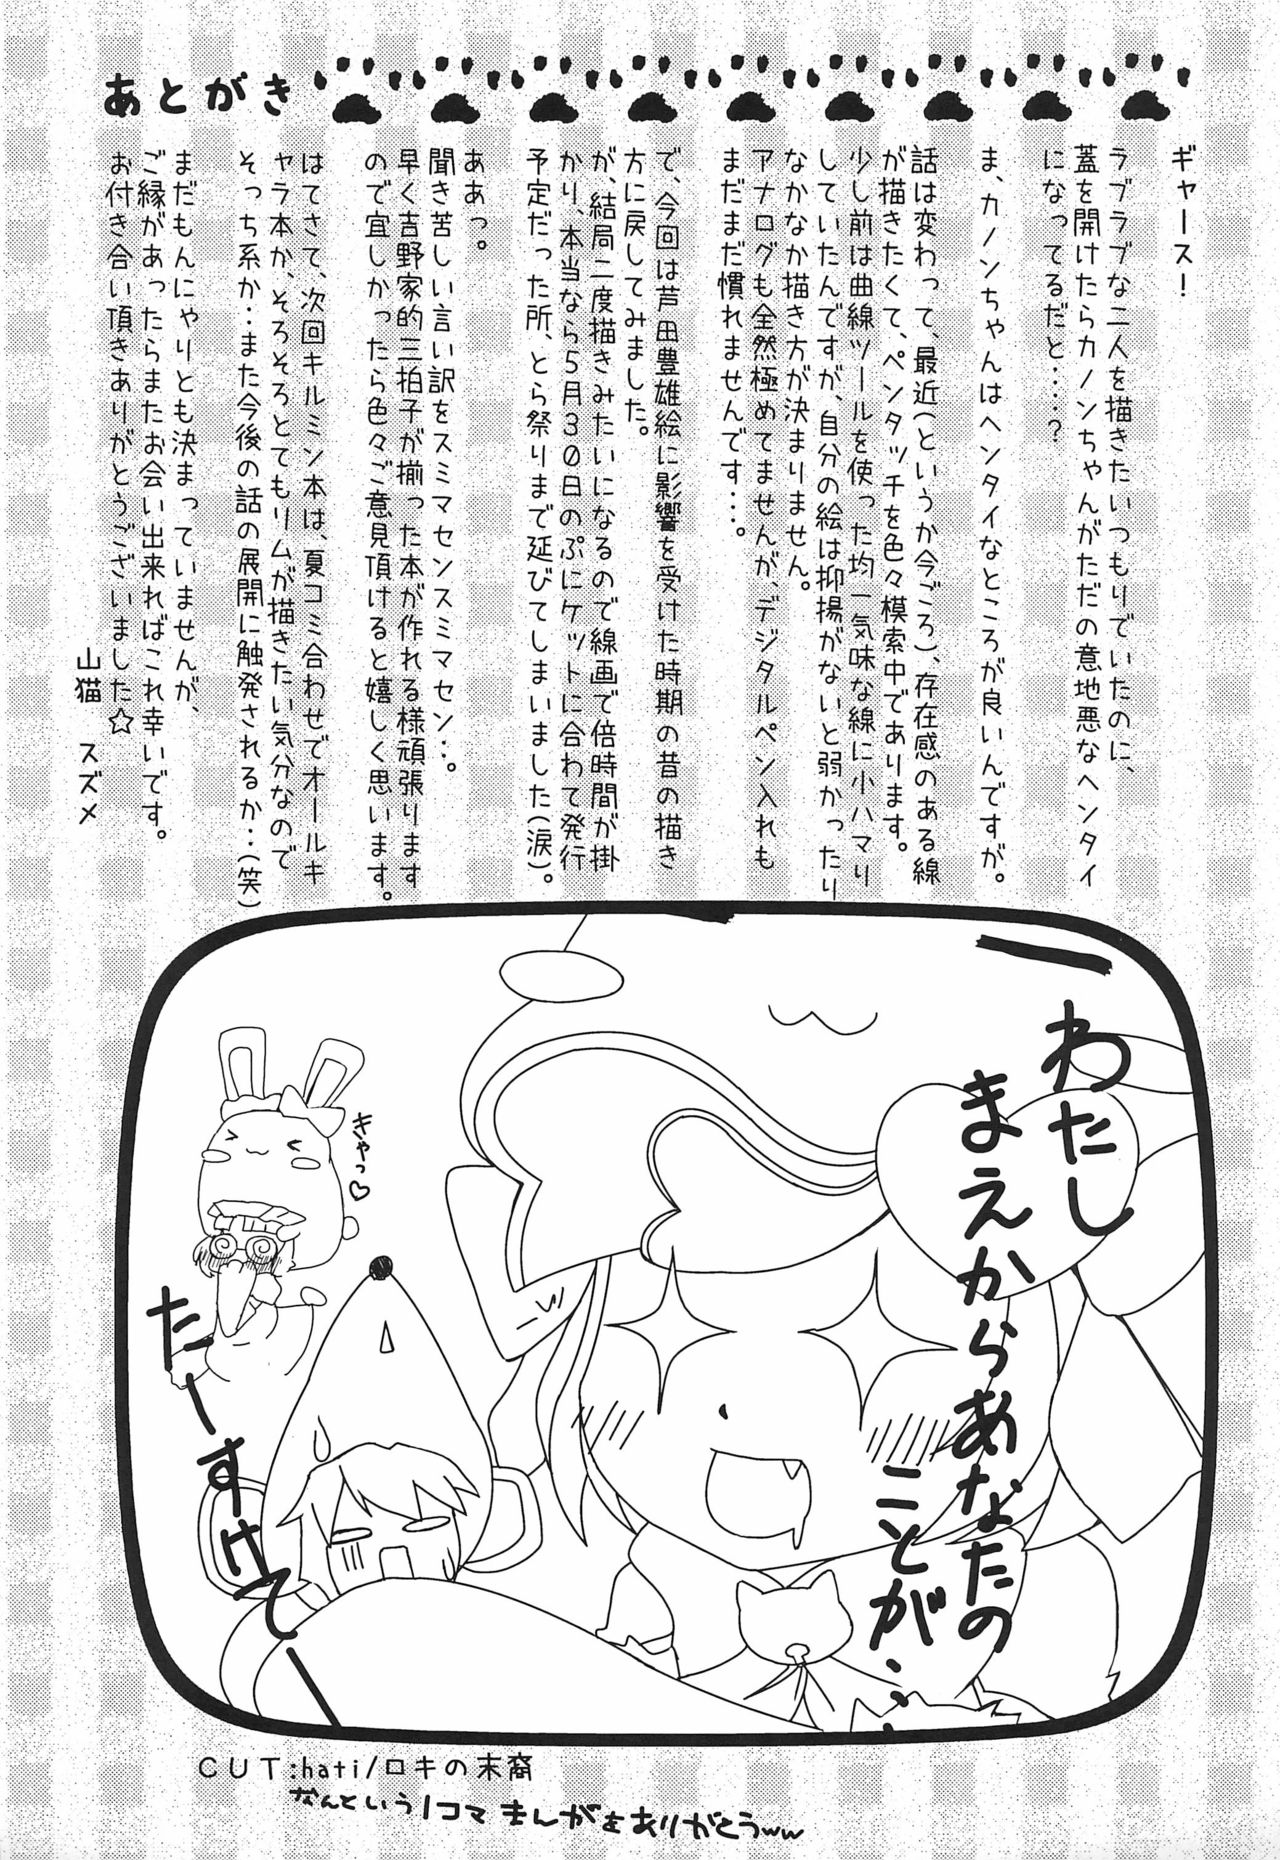 あとがき
ギャース！
ラブラブな二人を描きたいつもりでいたのに、
蓋を開けたらカノンちゃんがただの意地悪なヘンタイ
になってるだと‥‥？
ま、カノンちゃんはヘンタイなところが良いんですが。
話は変わって、最近(というか今ごろ)、存在感のある線
が描きたくて、ペンタッチを色々模索中であります。
少し前は曲線ツールを使った均一気味な線に小ハマり
していたんですが、自分の絵は抑揚がないと弱かったり
なかなか描き方が決まりません。
アナログも全然極めてませんが、デジタルペン入れも
まだまだ慣れませんです‥‥。
で、今回は芦田豊雄絵に影響を受けた時期の昔の描き
方に戻してみました。
が、結局二度描きみたいになるので線画で倍時間が掛
かり、本当なら５月３０日のぷにケットに合わせて発行
予定だった所、とら祭りまで延びてしまいました(涙)。
ああっ。
聞き苦しい言い訳をスミマセンスミマセン‥。
早く吉野家的三拍子が揃った本が作れる様頑張ります
ので宜しかったら色々ご意見頂けると嬉しく思います。
はてさて、次回キルミン本は、夏コミ合わせでオールキ
ャラ本か、そろそろとてもリムが描きたい気分なので
そっち系か‥また今後の話の展開に触発されるか‥(笑)
まだもんにゃりとも決まっていませんが、
ご縁があったらまたお会い出来ればこれ幸いです。
お付き合い頂きありがとうございました☆
山猫　スズメ
わたし
まえからあなたの
ことが‥‥
きゃっ♡
たーすけてー
CUT:hati/ロキの末裔
なんという1コマまんがをありがとうww